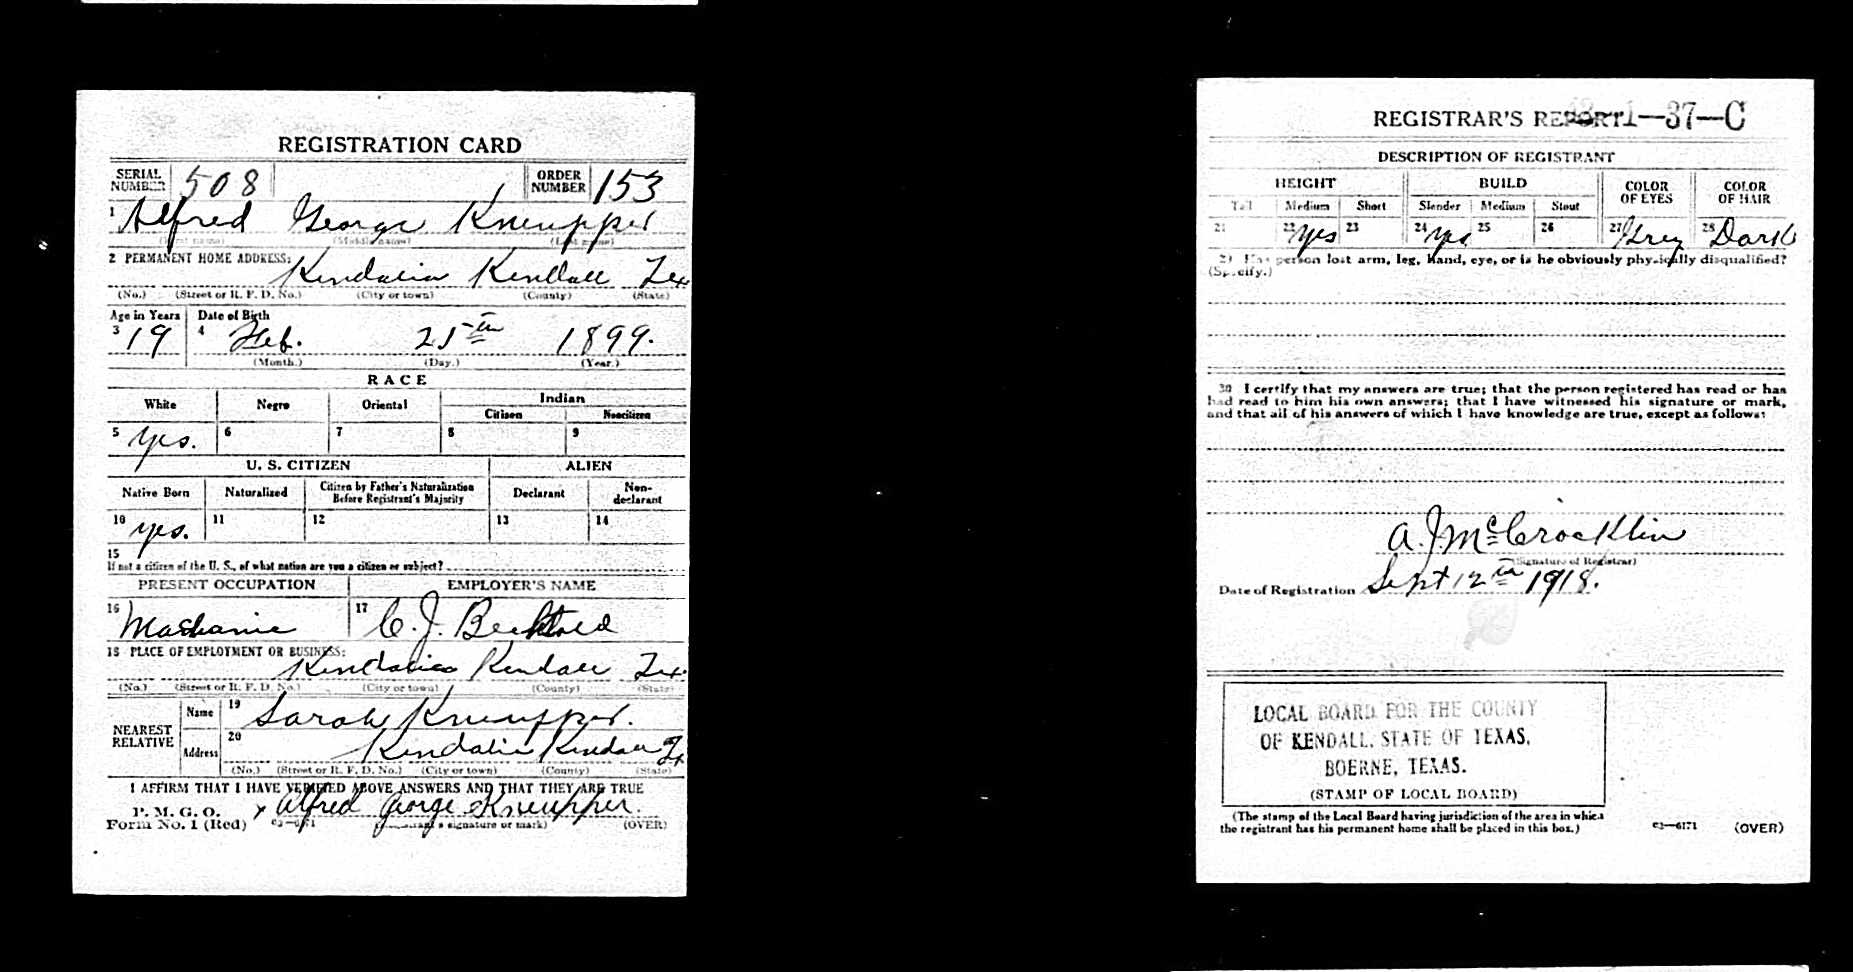 REGISTRATION CARD
SERIAL NUMBER 508 ORDER NUMBER 153
1 Alfred George Kneupper
(First name) (Middle name) (Last name)
2 PERMANENT HOME ADDRESS:
Kendalia Kendall Tex
(No.) (Street or R. F. D. No.) (City or town) (County) (State)
Age in Years Date of Birth
3 19 4 Feb. 25th 1899.
(Month.) (Day.) (Year.)
RACE
White Negro Oriental Indian
Citizen Noncitizen
5 yes. 6 7 8 9
U. S. CITIZEN ALIEN
Native Born Naturalized Citizen by Father's Naturalization Before Registrant's Majority Declarant Non-declarant
10 yes. 11 12 13 14
15
If not a citizen of the U. S., of what nation are you a citizen or subject?
PRESENT OCCUPATION EMPLOYER'S NAME
16 17 C. J.
18 PLACE OF EMPLOYMENT OR BUSINESS:
Kendalia Kendall Tex
(No.) (Street or R. F. D. No.) (City or town) (County) (State)
NEAREST RELATIVE Name 19 Sarah Kneupper.
Address 20 Kendalia Kendall Tx
(No.) (Street or R. F. D. No.) (City or town) (County) (State)
I AFFIRM THAT I HAVE VERIFIED ABOVE ANSWERS AND THAT THEY ARE TRUE
P. M. G. O.
Form No. 1 (Red) x Alfred George Kneupper.
03—6171 (Registrant's signature or mark) (OVER)
REGISTRAR'S REPORT 1—37—C
DESCRIPTION OF REGISTRANT
HEIGHT BUILD COLOR OF EYES COLOR OF HAIR
Tall Medium Short Slender Medium Stout
21 22 yes 23 24 yes 25 26 27 Grey 28 Dark
29 Has person lost arm, leg, hand, eye, or is he obviously physically disqualified?
(Specify.)
30 I certify that my answers are true; that the person registered has read or has
had read to him his own answers; that I have witnessed his signature or mark,
and that all of his answers of which I have knowledge are true, except as follows:
A. J. McCrocklin
(Signature of Registrar)
Date of Registration Sept 12th 1918.
LOCAL BOARD FOR THE COUNTY
OF KENDALL, STATE OF TEXAS,
BOERNE, TEXAS.
(STAMP OF LOCAL BOARD)
(The stamp of the Local Board having jurisdiction of the area in which
the registrant has his permanent home shall be placed in this box.)
03—6171 (OVER)